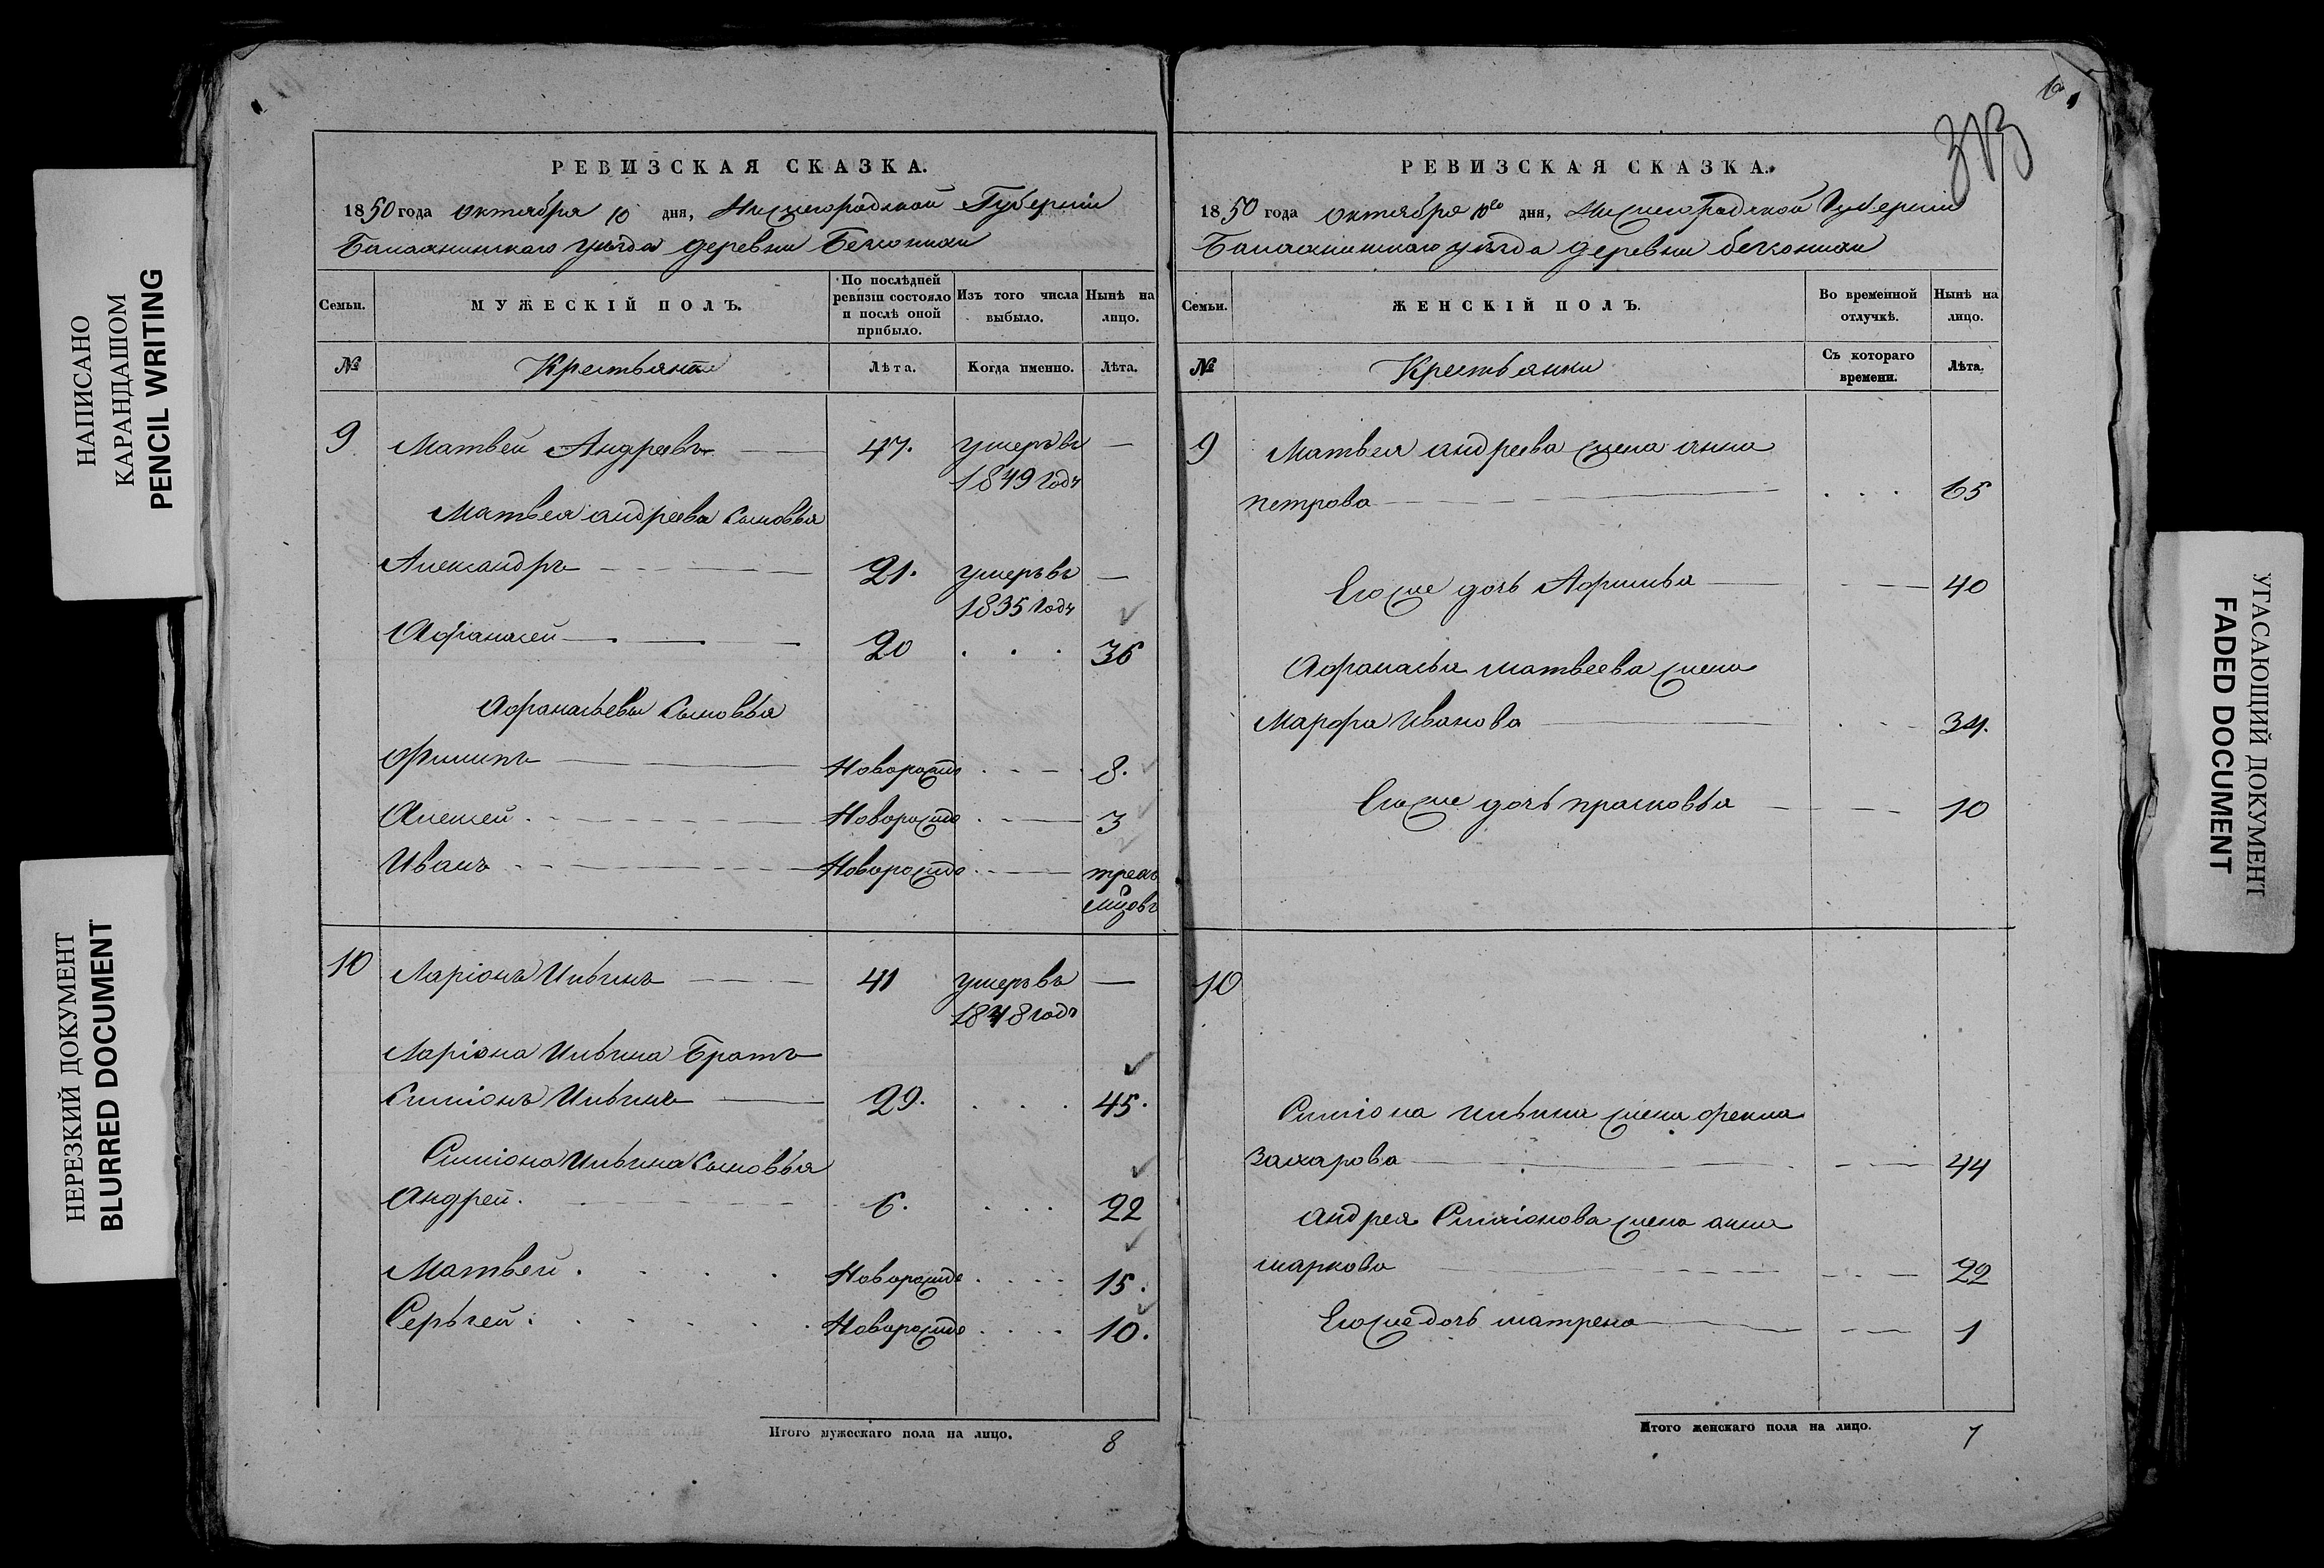 НАПИСАНО
КАРАНДАШОМ
PENCIL WRITING
НЕРЕЗКИЙ ДОКУМЕНТ
BLURRED DOCUMENT
РЕВИЗСКАЯ СКАЗКА.
1850 года октября 10 дня, Нижегородской Губернiи
Балахнинскаго уѣзда деревни
Семьи. МУЖЕСКІЙ ПОЛЪ. По послѣдней ревизіи состояло и послѣ оной прибыло. Изъ того числа выбыло. Нынѣ на лицо.
№ Крестьяне Лѣта. Когда именно. Лѣта.
9 Матвей Андреевъ 47. умеръ въ —
1849 годѣ
Матвея андреева сыновья
Александръ 21. умеръ въ —
1835 годѣ
Афанасей 20 36
Афанасьевы сыновья
Филипъ Новорожде 8.
Алексей Новорожде 3
Иванъ Новорожде трехъ
10 Ларiонъ Ильинъ 41 умеръ въ —
1848 годѣ
Ларiона Ильина Братъ
Симiонъ Ильинъ 29. 45.
Симiона Ильина сыновья
Андрей. 6. 22
Матвей. Новорожде 15.
Серьгей. Новорожде 10.
Итого мужескаго пола на лицо. 8
РЕВИЗСКАЯ СКАЗКА.
1850 года октября 10го дня, Нижегородской Губернiи
Балахнинскаго уѣзда деревни
Семьи. ЖЕНСКІЙ ПОЛЪ. Во временной отлучкѣ. Нынѣ на лицо.
№ Крестьянки Съ котораго времени. Лѣта.
9 Матвея андреева жена анна
петрова 65
Его же дочь Афимья 40
Афанасья матвеева жена
Марфа Иванова 34.
Его же дочь прасковья 10
10
Симiона ильина жена фекла
захарова 44
андрея Симiонова жена анна
маркова 22
Его же дочь матрена 1
Итого женскаго пола на лицо. 7
УГАСАЮЩИЙ ДОКУМЕНТ
FADED DOCUMENT